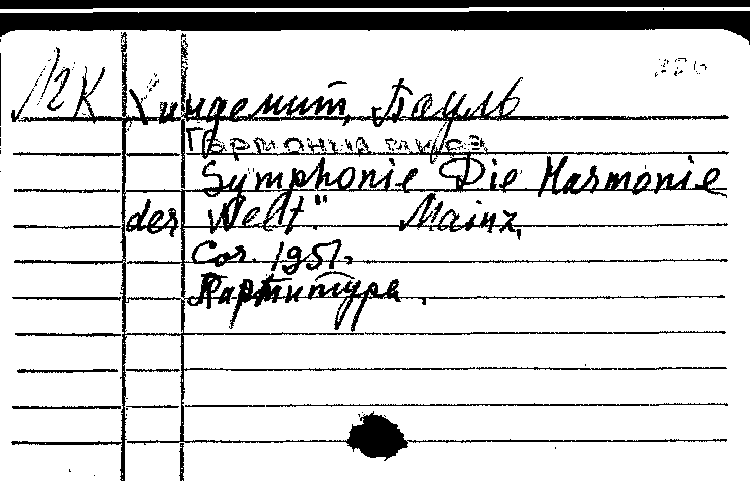 МК Хиндемит, Пауль
Гармония мира
Symphonie Die Harmonie
der Welt." Mainz,
Cor. 1951.
Партитура.